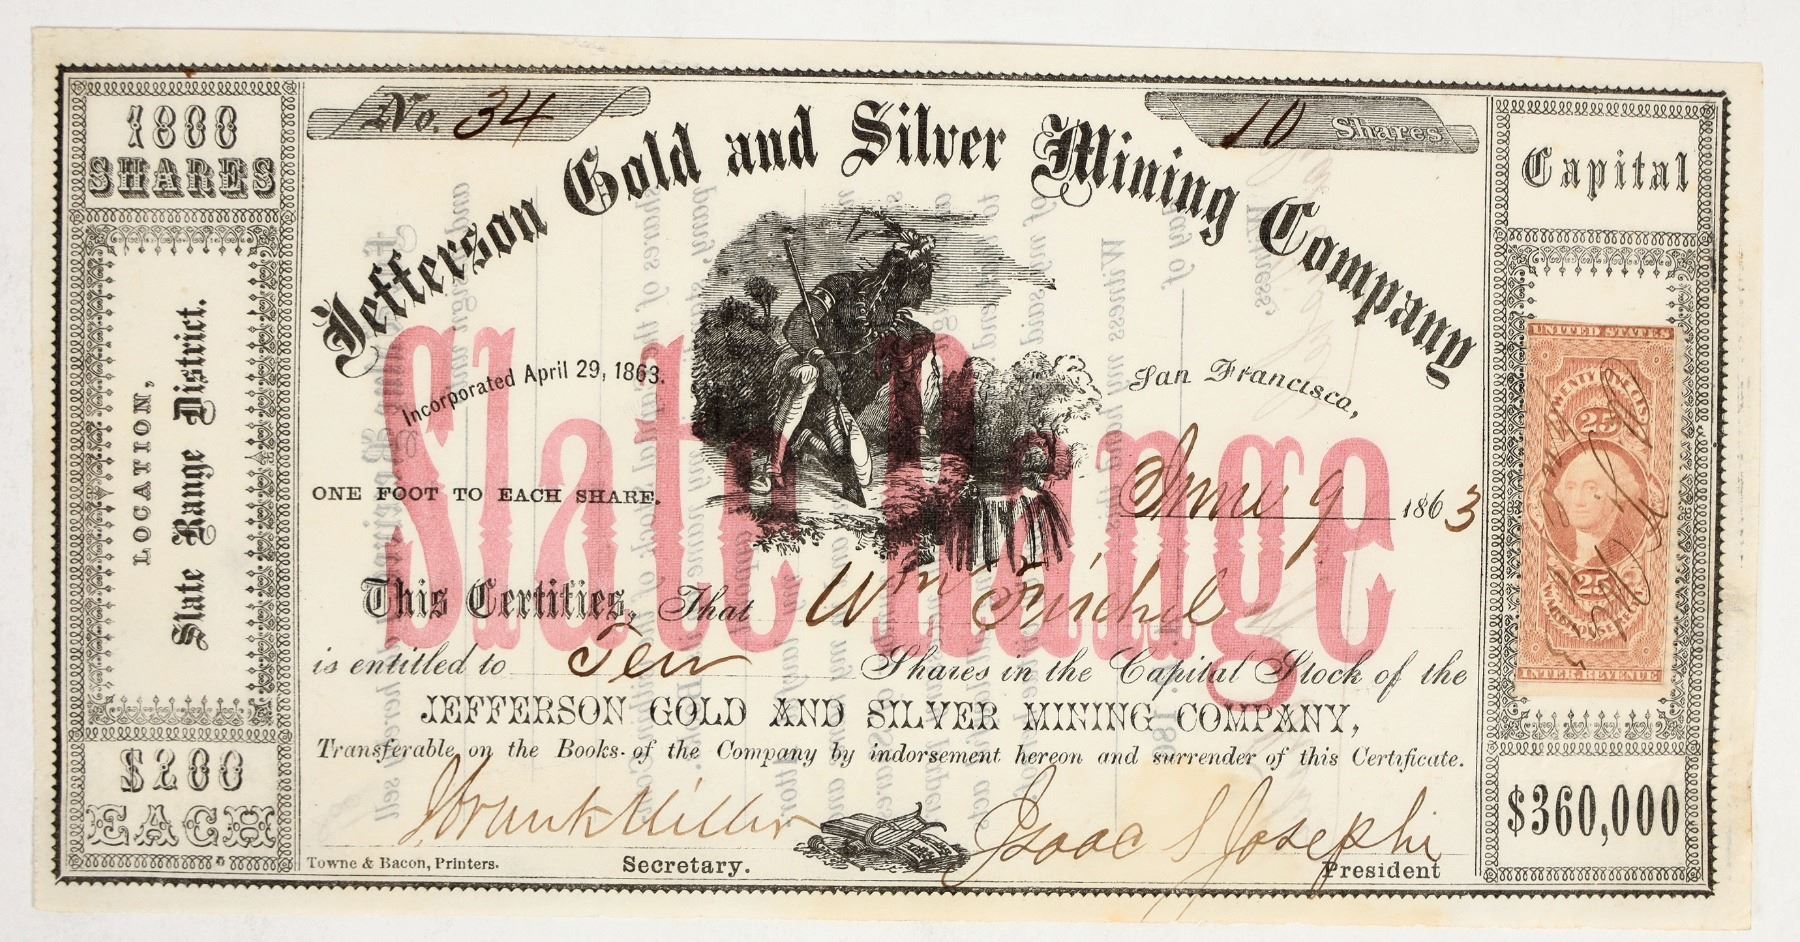 No. 34
10 Shares
Jefferson Gold and Silver Mining Company
1800
SHARES
LOCATION,
Slate Range District.
$200
EACH
Incorporated April 29, 1863.
ONE FOOT TO EACH SHARE.
Slate Range
San Francisco,
June 9 1863
This Certifies, That Wm
is entitled to Ten Shares in the Capital Stock of the
JEFFERSON GOLD AND SILVER MINING COMPANY,
Transferable on the Books of the Company by indorsement hereon and surrender of this Certificate.
Frank Miller
Isaac S Josephi
Towne & Bacon, Printers.
Secretary.
President
Capital
UNITED STATES
TWENTY FIVE CTS.
25
25
INTER. REVENUE
$360,000